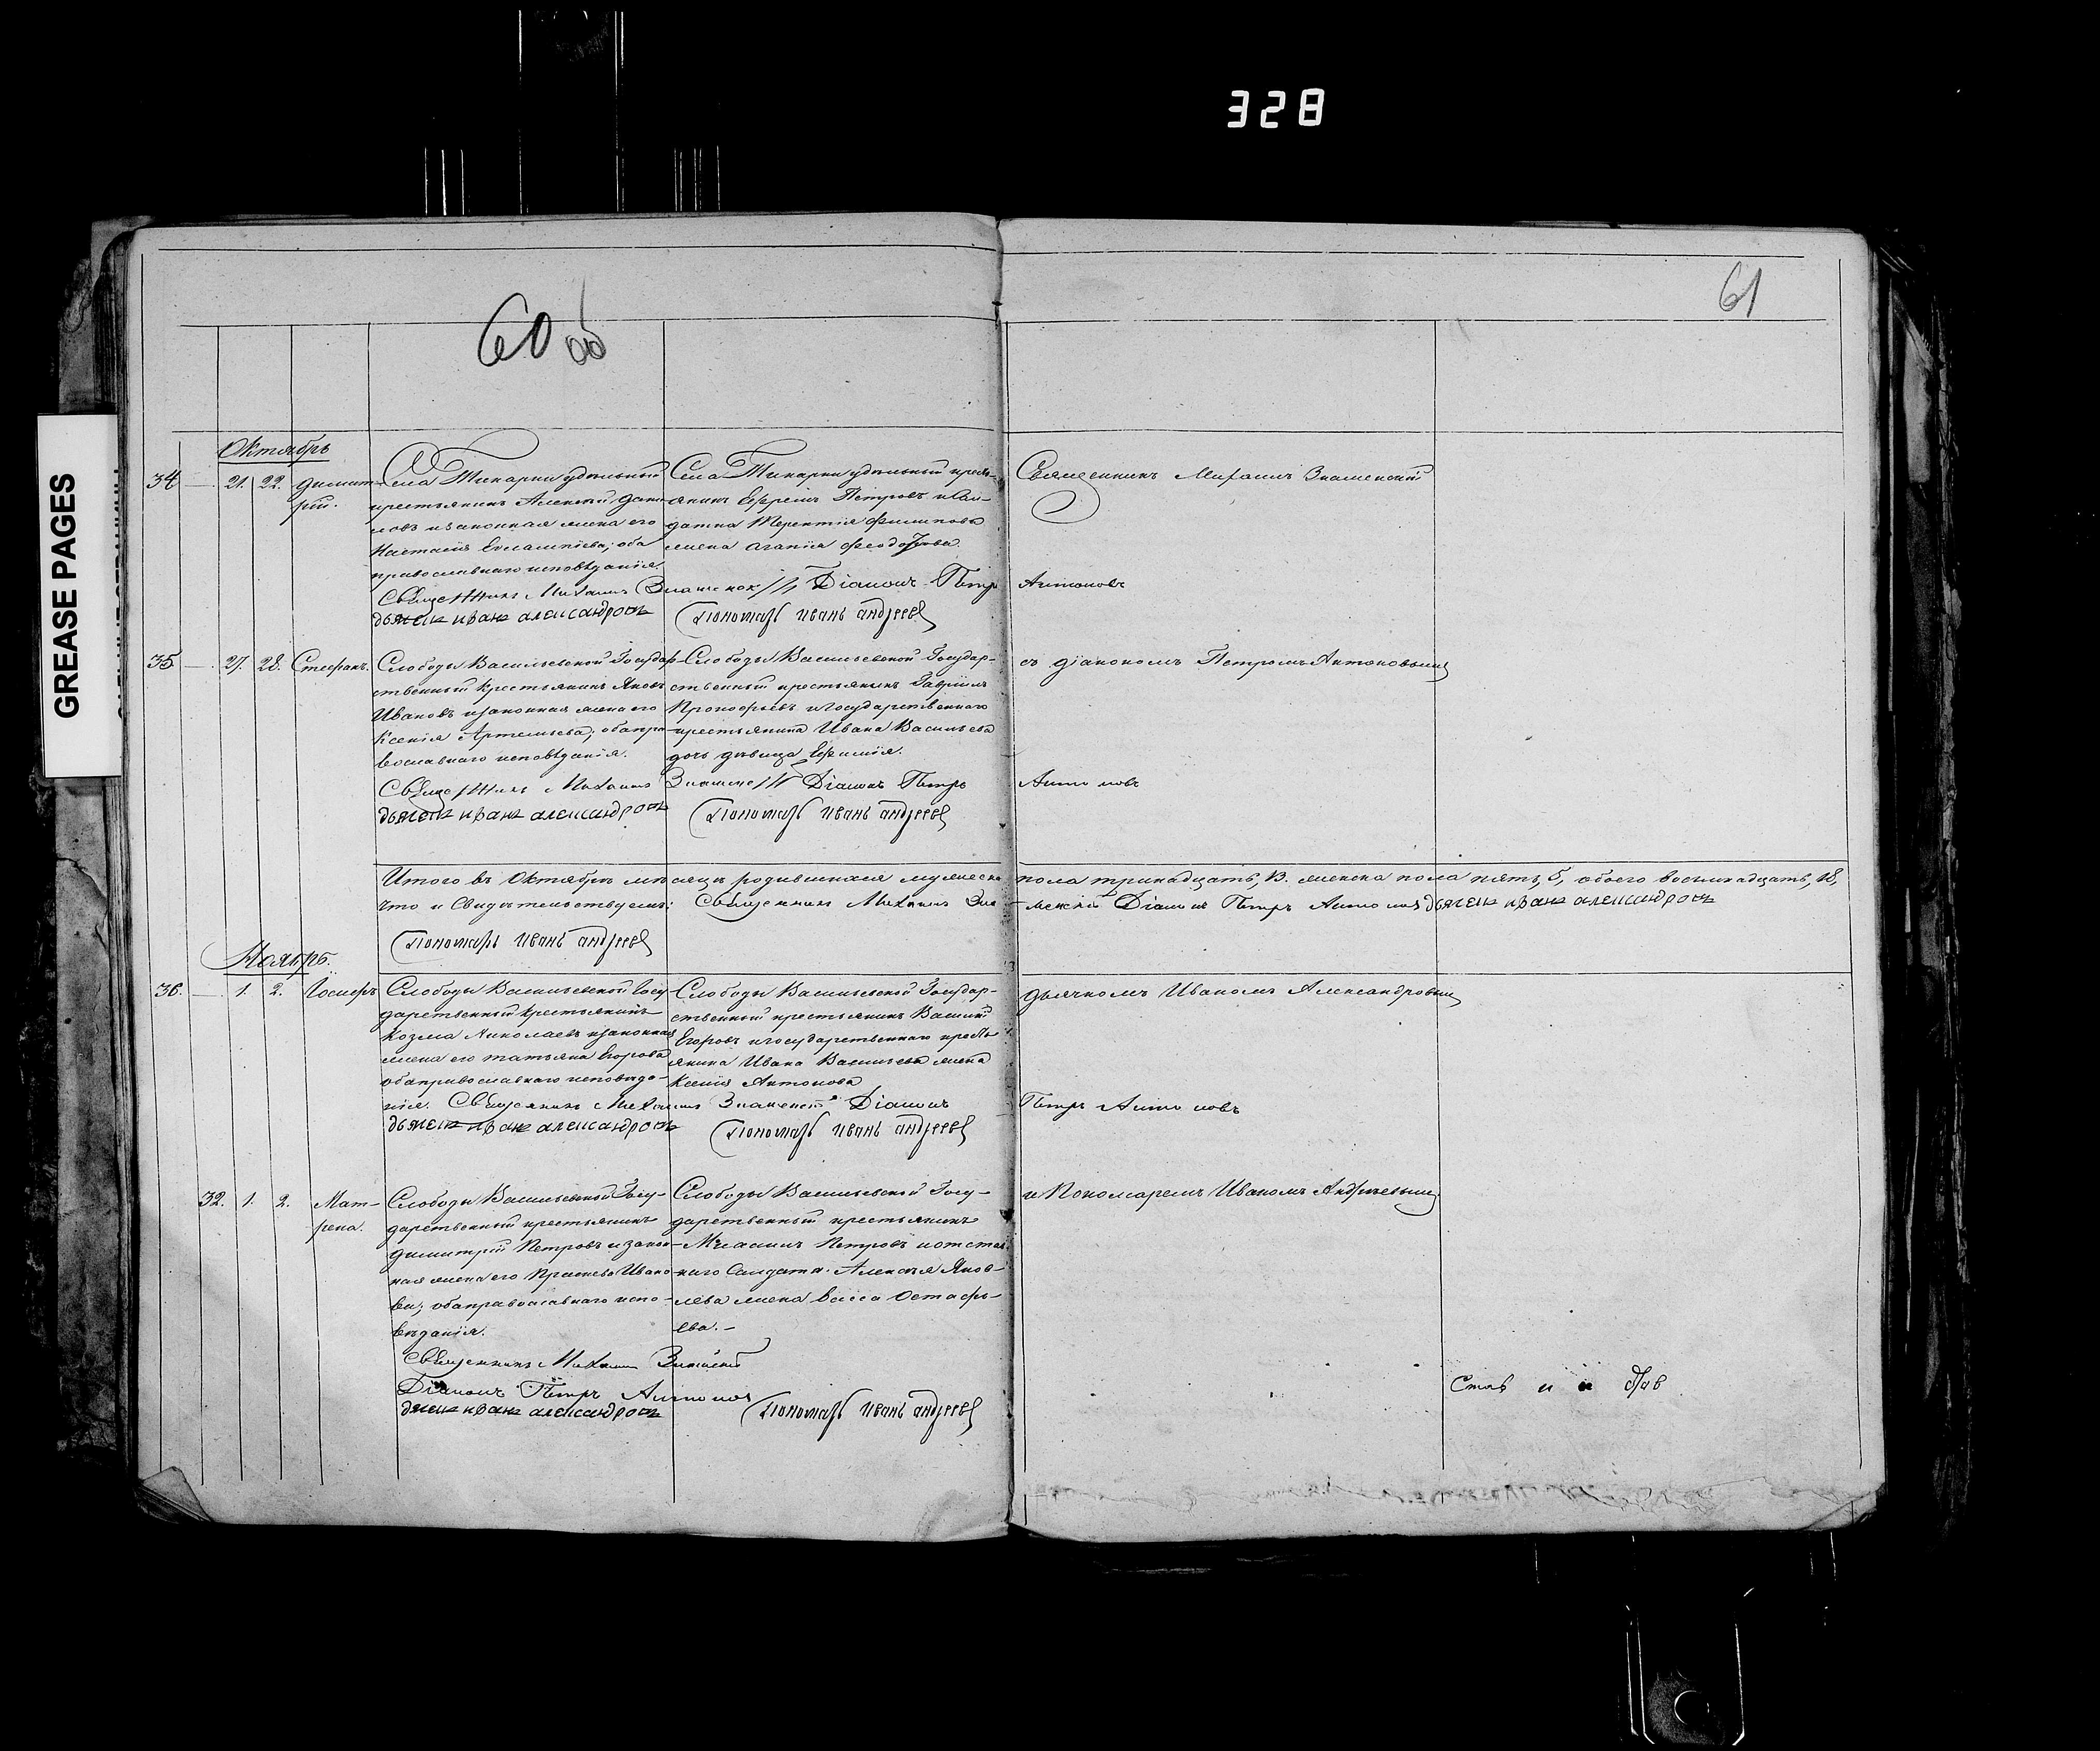 328
GREASE PAGES
60 об
61
Октябрь
34 — 21. 22. Димит-
рій.
Села Тинарки удѣльный
крестьянинъ Алексѣй Дани-
ловъ и законная жена его
Настасія Евлампіева; оба
православнаго исповѣданія
Села Тинарки удѣльный кресть-
янинъ Ефремъ Петровъ и сол-
датка Терентія Филипова
жена Агапія Феодотова.
Священникъ Михаилъ Знаменскій
Священникъ Михаилъ Діаконъ Петръ Антоновъ
дьячекъ иванъ александровъ
Пономарь иванъ андреевъ
35 — 27. 28. Стефанъ.
Слободы Васильевской Государ-
ственный крестьянинъ Яковъ
Ивановъ и законная жена его
Ксенія Артемьева; оба пра-
вославнаго исповѣданія.
Слободы Васильевской Государ-
ственный крестьянинъ Гавріилъ
Прокофьевъ и Государственнаго
крестьянина Ивана Васильева
дочь дѣвица Ефимія.
съ діакономъ Петромъ Антоновымъ
Священникъ Михаилъ Діаконъ Петръ Антоновъ
дьячекъ иванъ александровъ
Пономарь иванъ андреевъ
Итого въ Октябрѣ мѣсяцѣ родившихся мужеска пола тринадцать, 13. женска пола пять, 5, обоего восемнадцать, 18,
что и свидѣтельствуемъ: Священникъ Михаилъ Знаменскій Діаконъ Петръ Антоновъ дьячекъ иванъ александровъ
Пономарь иванъ андреевъ
Ноябрь.
36. — 1. 2. Іосифъ
Слободы Васильевской Госу-
дарственный крестьянинъ
Козма Николаевъ и законная
жена его Татьяна Егорова
оба православнаго исповѣда-
нія.
Слободы Васильевской Государ-
ственный крестьянинъ Василій
Егоровъ и государственнаго кресть-
янина Ивана Васильева жена
Ксенія Антонова
дьячкомъ Иваномъ Александровымъ
Священникъ Михаилъ Знаменскій Діаконъ Петръ Антоновъ
дьячекъ иванъ александровъ
Пономарь иванъ андреевъ
32. 1. 2. Мат-
рена.
Слободы Васильевской Госу-
дарственный крестьянинъ
Димитрій Петровъ и закон-
ная жена его Прасковья Ивано-
ва; оба православнаго испо-
вѣданія.
Слободы Васильевской Госу-
дарственный крестьянинъ
Михаилъ Петровъ и отстав-
наго Солдата Алексѣя Яков-
лева жена Васса Остафь-
ева. —
и Пономаремъ Иваномъ Андреевымъ
Священникъ Михаилъ Знаменскій
Діаконъ Петръ Антоновъ
дьячекъ иванъ александровъ
Пономарь иванъ андреевъ